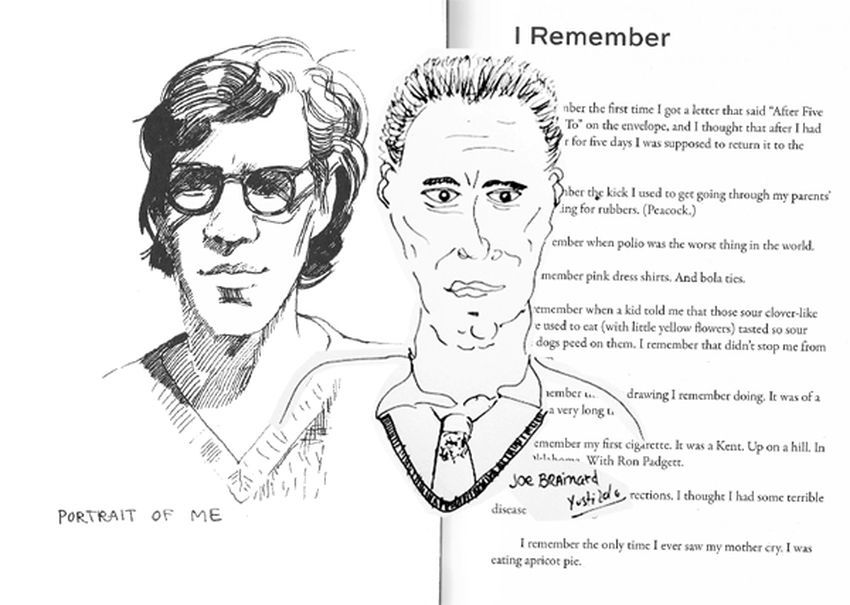 I Remember
mber the first time I got a letter that said “After Five
To” on the envelope, and I thought that after I had
r for five days I was supposed to return it to the
mber the kick I used to get going through my parents’
ing for rubbers. (Peacock.)
ember when polio was the worst thing in the world.
member pink dress shirts. And bola ties.
emember when a kid told me that those sour clover-like
e used to eat (with little yellow flowers) tasted so sour
dogs peed on them. I remember that didn’t stop me from
ember drawing I remember doing. It was of a
a very long
emember my first cigarette. It was a Kent. Up on a hill. In
With Ron Padgett.
JOE BRAiNard
rections. I thought I had some terrible
disease
PORTRAIT OF ME
I remember the only time I ever saw my mother cry. I was
eating apricot pie.